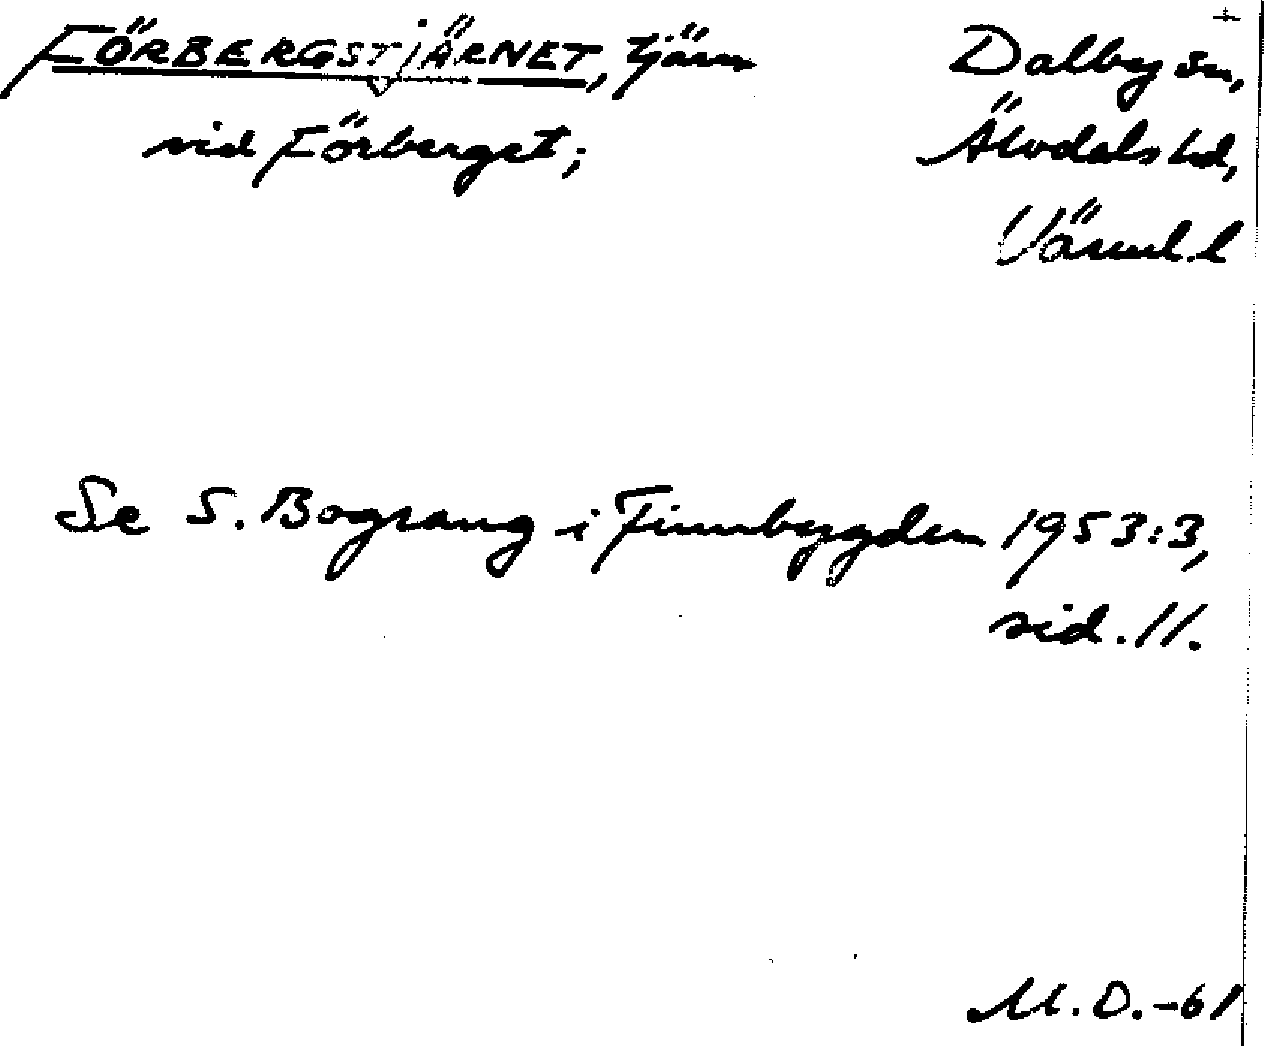 FÖRBERGSTJÄRNET, tjärn
vid Förberget;
Dalby sn,
Älvdals hd,
Värml. l
Se S. Bograng i Finnbygden 1953:3,
sid. 11.
M.D.-61